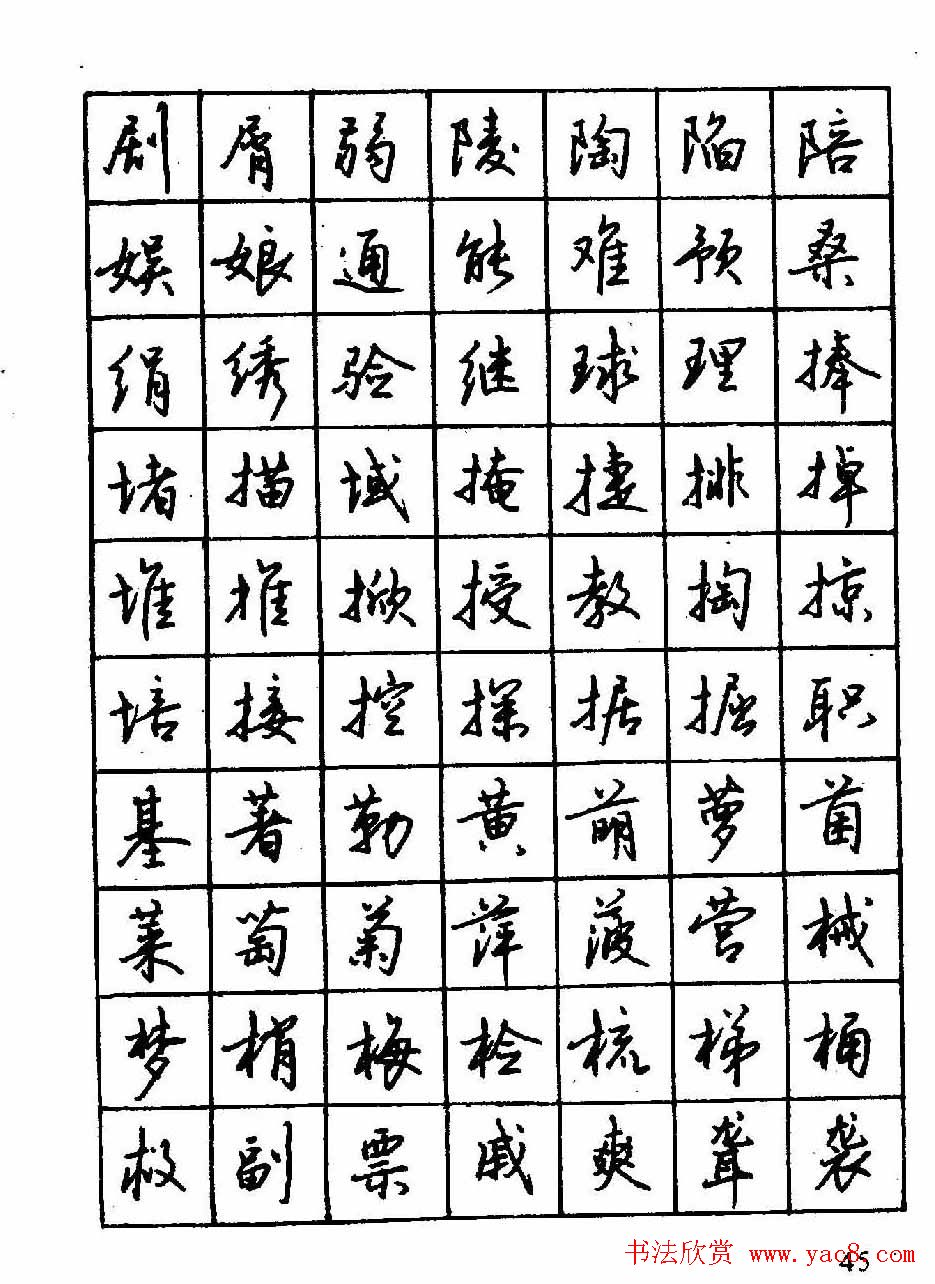 剧 屑 弱 陵 陶 陷 陪
娱 娘 通 能 难 预 桑
绢 绣 验 继 球 理 捧
堵 描 域 掩 捷 排 掉
堆 推 掀 授 教 掏 掠
培 接 控 探 据 掘 职
基 著 勒 黄 萌 萝 菌
菜 萄 菊 萍 菠 营 械
梦 梢 梅 检 梳 梯 桶
救 副 票 戚 爽 聋 袭
45
书法欣赏 www.yac8.com